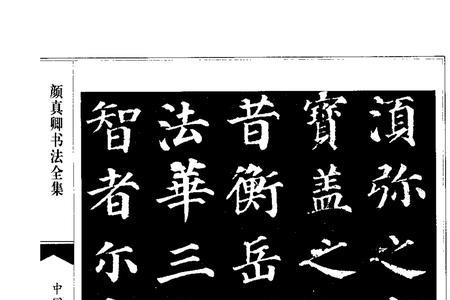 湏弥之
寳盖之
昔衡岳
法華三
智者尓
颜真卿书法全集
中国